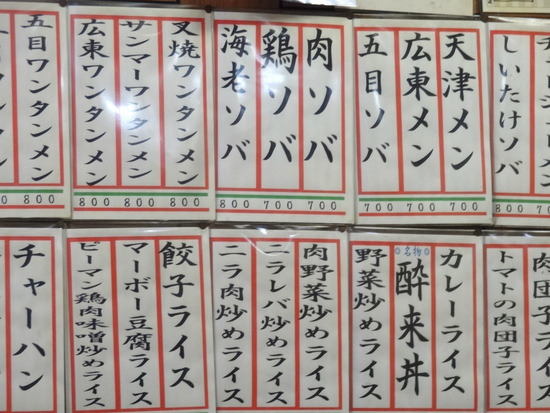 しいたけソバ
800
天津メン
700
広東メン
700
五目ソバ
700
肉ソバ
700
鶏ソバ
700
海老ソバ
800
叉焼ワンタンメン
800
サンマーワンタンメン
800
広東ワンタンメン
800
五目ワンタンメン
800
トマトの肉団子ライス
カレーライス
名物
酔来丼
野菜炒めライス
肉野菜炒めライス
ニラレバ炒めライス
ニラ肉炒めライス
餃子ライス
マーボー豆腐ライス
ピーマン鶏肉味噌炒めライス
チャーハン